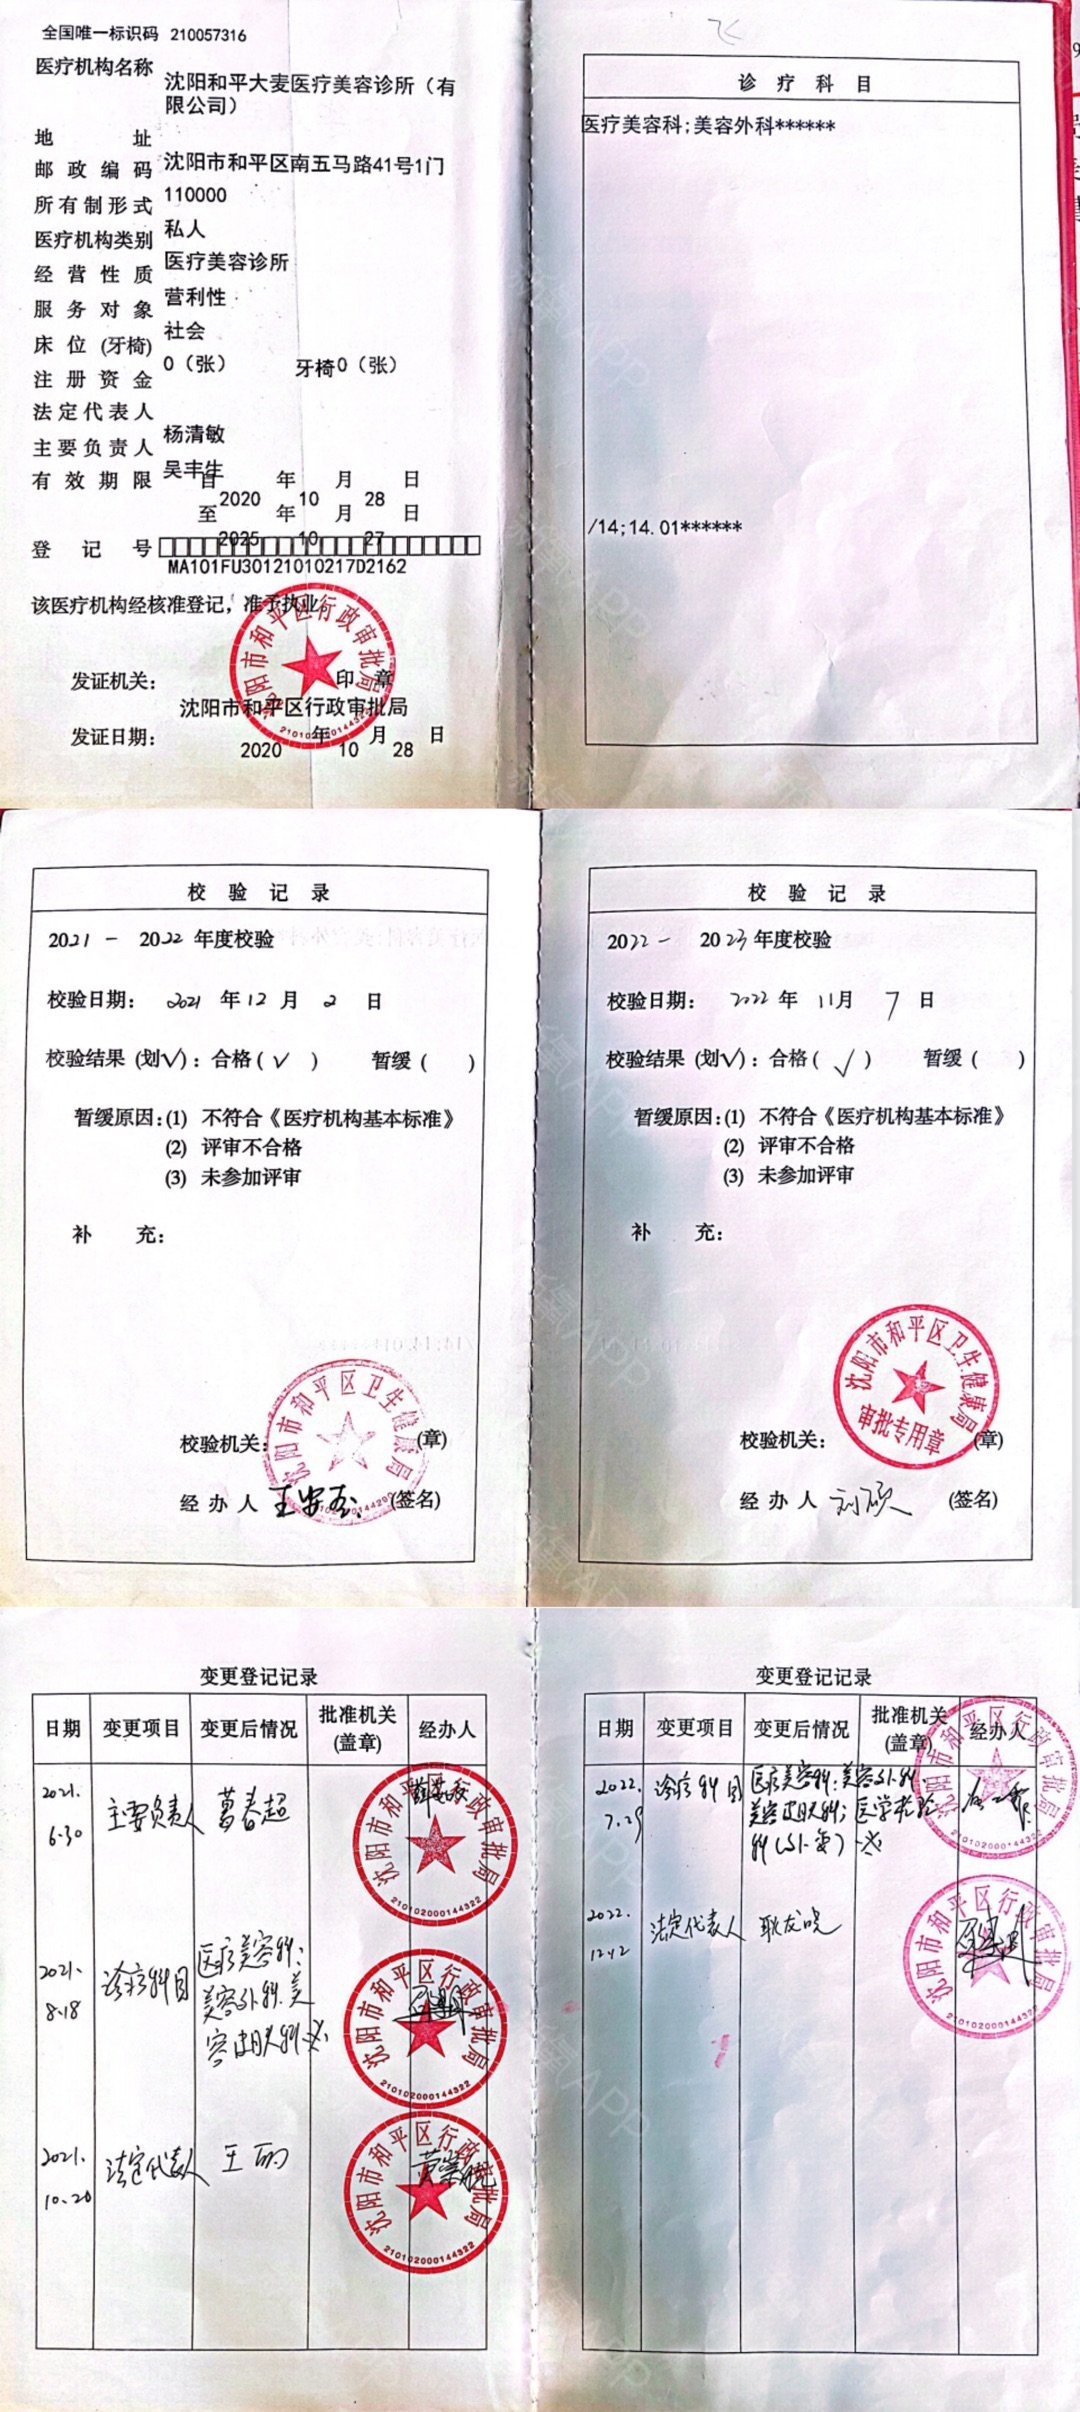 全国唯一标识码 210057316
医疗机构名称 沈阳和平大麦医疗美容诊所（有
限公司）
地 址 沈阳市和平区南五马路41号1门
邮政编码 110000
所有制形式 私人
医疗机构类别 医疗美容诊所
经营性质 营利性
服务对象 社会
床位(牙椅) 0（张） 牙椅0（张）
注册资金
法定代表人 杨清敏
主要负责人 吴丰生
有效期限 自 2020 年 10 月 28 日
至 2025 年 10 月 27 日
登记号 MA101FU30121010217D2162
该医疗机构经核准登记，准予执业。
发证机关： 印 章
沈阳市和平区行政审批局
发证日期： 2020 年 10 月 28 日
沈阳市和平区行政审批局
210102000144322
诊疗科目
医疗美容科;美容外科******
/14;14.01******
校验记录
2021 - 2022 年度校验
校验日期： 2021 年 12 月 2 日
校验结果 (划√)：合格(√) 暂缓( )
暂缓原因：(1) 不符合《医疗机构基本标准》
(2) 评审不合格
(3) 未参加评审
补 充：
校验机关： (章)
经办人 (签名)
沈阳市和平区卫生健康局
校验记录
2022 - 2023 年度校验
校验日期： 2022 年 11月 7 日
校验结果 (划√)：合格(√) 暂缓( )
暂缓原因：(1) 不符合《医疗机构基本标准》
(2) 评审不合格
(3) 未参加评审
补 充：
校验机关： (章)
经办人 刘硕 (签名)
沈阳市和平区卫生健康局
审批专用章
变更登记记录
日期 变更项目 变更后情况 批准机关(盖章) 经办人
2021.6.30 主要负责人 葛春超
沈阳市和平区行政审批局
210102000144322
2021.8.18 诊疗科目 医疗美容科:美容外科.美容皮肤科
沈阳市和平区行政审批局
210102000144322
2021.10.20 法定代表人 王
沈阳市和平区行政审批局
210102000144322
变更登记记录
日期 变更项目 变更后情况 批准机关(盖章) 经办人
2022.7.29 诊疗科目 医疗美容科:美容外科 美容皮肤科;医学检验科(外委)
沈阳市和平区行政审批局
210102000144322
2022.12.12 法定代表人 耿友
沈阳市和平区行政审批局
210102000144322